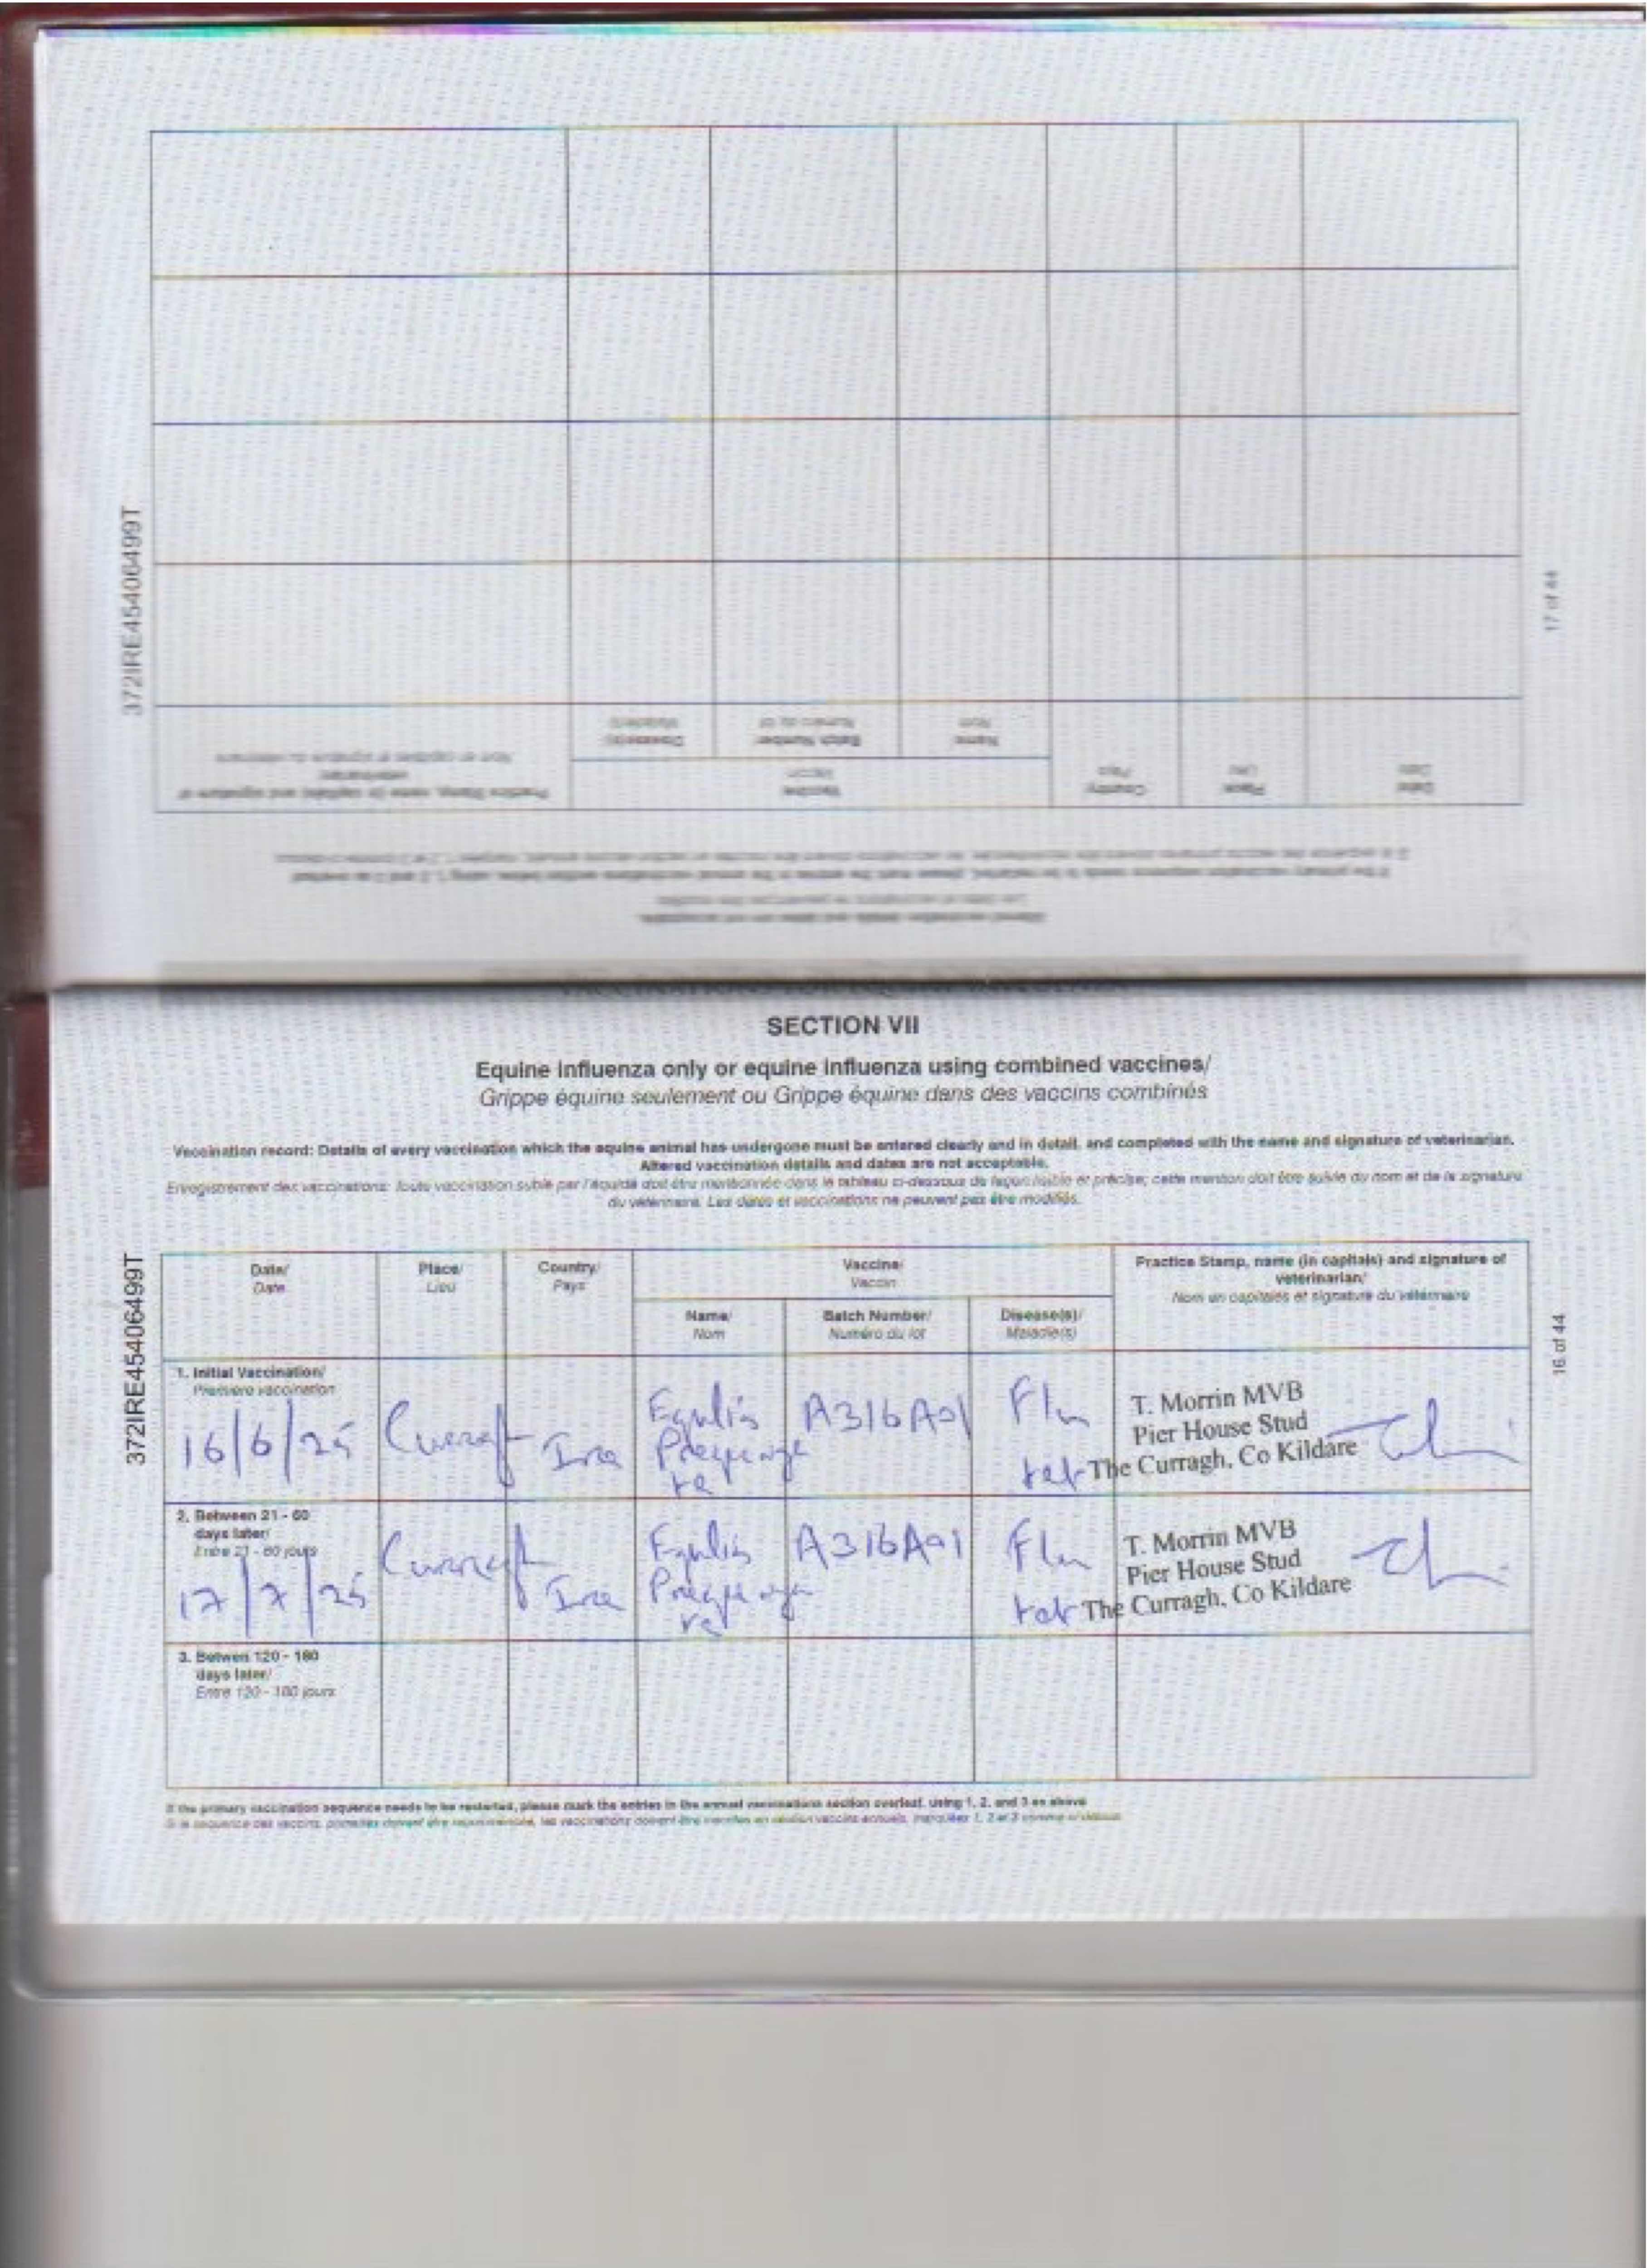 372IRE45406499T
17 of 44
Disease(s)/
Batch Number
Numéro du lot
Name
Nom
Practice Stamp, name (in capitals) and signature of
veterinarian/
Nom en capitales et signature du vétérinaire
Vaccine
Vaccin
Country
Pays
Place
Lieu
Date
Date
SECTION VII
Equine influenza only or equine influenza using combined vaccines/
Grippe équine seulement ou Grippe équine dans des vaccins combinés
Vaccination record: Details of every vaccination which the equine animal has undergone must be entered clearly and in detail, and completed with the name and signature of veterinarian.
Altered vaccination details and dates are not acceptable.
Enregistrement des vaccinations: toute vaccination subie par l'équidé doit être mentionnée dans le tableau ci-dessous de façon lisible et précise; cette mention doit être suivie du nom et de la signature
du vétérinaire. Les dates et vaccinations ne peuvent pas être modifiés.
372IRE45406499T
16 of 44
Date/
Date
Place/
Lieu
Country/
Pays
Vaccine/
Vaccin
Name/
Nom
Batch Number/
Numéro du lot
Disease(s)/
Maladie(s)
Practice Stamp, name (in capitals) and signature of
veterinarian/
Nom en capitales et signature du vétérinaire
1. Initial Vaccination/
Première vaccination
16/6/25
Curragh
Ire
Equilis
Prequenza
te
A316A01
Flu
tet
T. Morrin MVB
Pier House Stud
The Curragh, Co Kildare
2. Between 21 - 60
days later/
Entre 21 - 60 jours
17/7/25
Curragh
Ire
Equilis
Prequenza
te
A316A01
Flu
tet
T. Morrin MVB
Pier House Stud
The Curragh, Co Kildare
3. Betwen 120 - 180
days later/
Entre 120 - 180 jours
If the primary vaccination sequence needs to be restarted, please mark the entries in the annual vaccinations section overleaf, using 1, 2, and 3 as above